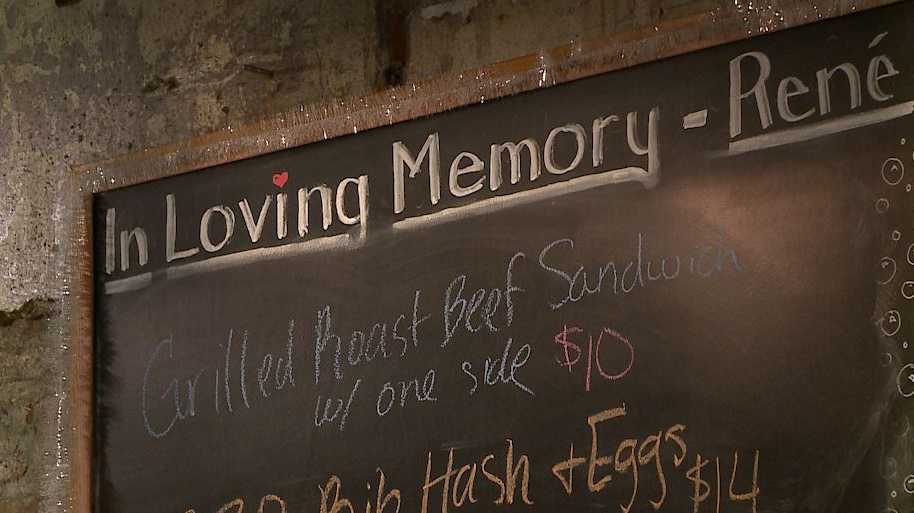 In Loving Memory - René
Grilled Roast Beef Sandwich
w/ one side $10
Rib Hash + Eggs $14